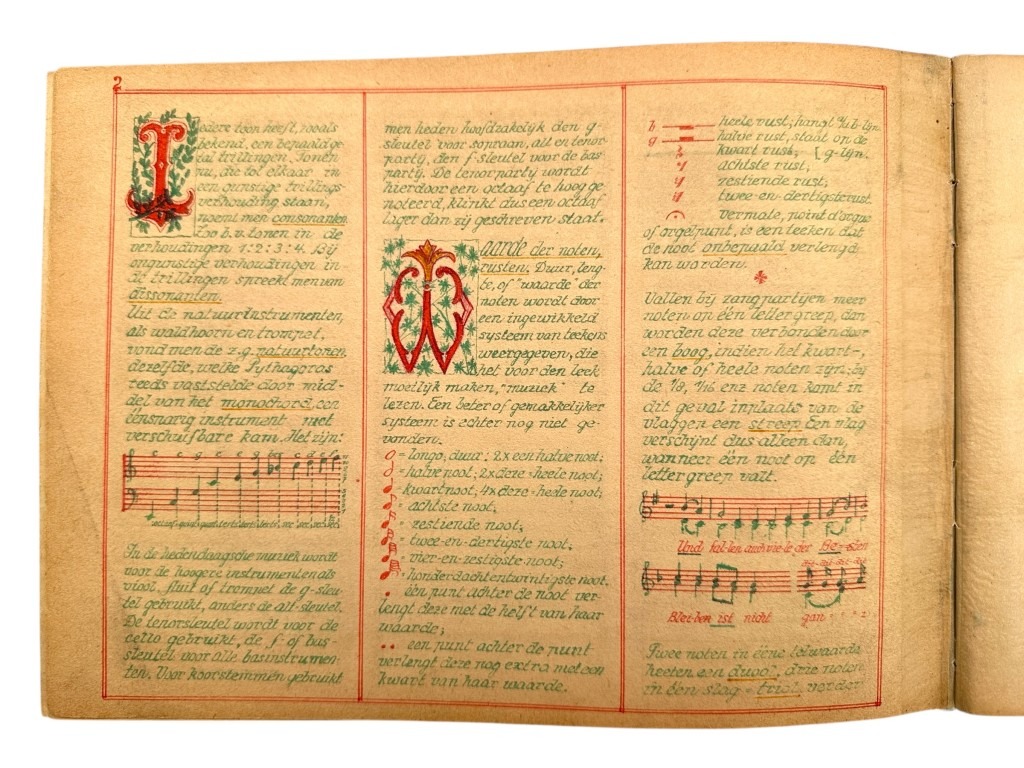 2
Iedere toon heeft, zooals
bekend, een bepaald ge-
tal trillingen. Tonen
nu, die tot elkaar in
een gunstige trillings-
verhouding staan,
noemt men consonanten.
Zoo b.v. tonen in de
verhoudingen 1:2:3:4. Bij
ongunstige verhoudingen in
de trillingen spreekt men van
dissonanten.
Uit de natuurinstrumenten,
als waldhoorn en trompet,
vond men de z.g. natuurtonen
dezelfde, welke Pythagoras
reeds vaststelde door mid-
del van het monochord, een
éénsnarig instrument met
verschuifbare kam. Het zijn:
In de hedendaagsche muziek wordt
voor de hoogere instrumenten als
viool, fluit of trompet de g-sleu-
tel gebruikt, anders de alt-sleutel.
De tenorsleutel wordt voor de
cello gebruikt, de f- of bas-
sleutel voor alle basinstrumen-
ten. Voor koorstemmen gebruikt
men heden hoofdzakelijk den g-
sleutel voor sopraan, alt en tenor-
partij, den f-sleutel voor de bas-
partij. De tenorpartij wordt
hierdoor een octaaf te hoog ge-
noteerd, klinkt dus een octaaf
lager dan zij geschreven staat.
Waarde der noten,
rusten. Duur, leng-
te, of "waarde" der
noten wordt door
een ingewikkeld
systeem van teekens
weergegeven, die
het voor den leek
moeilijk maken, "muziek" te
lezen. Een beter of gemakkelijker
systeem is echter nog niet ge-
vonden.
= longo, duur: 2x een halve noot;
= halve noot; 2x deze = heele noot;
= kwartnoot; 4x deze = heele noot;
= achtste noot;
= zestiende noot;
= twee-en-dertigste noot;
= vier-en-zestigste noot;
= honderdachtentwintigste noot.
een punt achter de noot ver-
lengt deze met de helft van haar
waarde;
een punt achter de punt
verlengt deze nog extra met een
kwart van haar waarde.
heele rust; hangt a/d b-lijn.
halve rust, staat op de
kwart rust; [g-lijn.
achtste rust;
zestiende rust;
twee-en-dertigste rust.
vermate, point d'orgue
of orgelpunt, is een teeken dat
de noot onbepaald verlengd
kan worden.
Vallen bij zangpartijen meer
noten op één lettergreep, dan
worden deze verbonden door
een boog, indien het kwart-,
halve of heele noten zijn; bij
de 1/8, 1/16 enz noten komt in
dit geval inplaats van de
vlaggen een streep. Een vlag
verschijnt dus alleen dan,
wanneer één noot op één
lettergreep valt.
Und fal-len auch vie-le der Be-sten
Blei-ben ist nicht gan
Twee noten in ééne telwaarde
heeten een duool, drie noten
in één slag = triol, verder